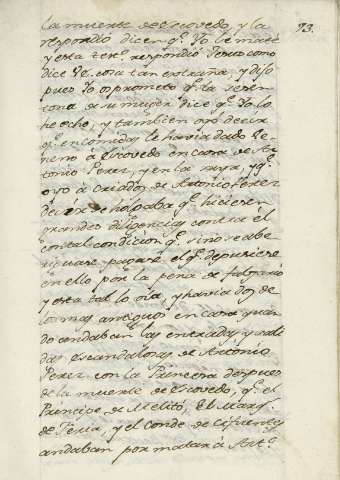 73.
la muerte de Escovedo, y la
respondio dicen q.e Yo le maté
y esta ter.o respondió Jesus como
dice Vs. cosa tan extraña y dijo
pues Yo os prometo q.e la
de su muger dice q.e Yo lo
he echo, y tambien oyó decir
q.e en comidas le havia dado Ve-
neno a Escovedo en casa de An-
tonio Perez, y en la suya, y q.e
oyo a criados de Antonio Perez
decir se holgaba q.e hiciesen
grandes diligencias contra él
con tal condicion q.e si no se abe-
riguare pagase el q.e depusiere
en ello por la pena de
y esta tal lo oia, y havia dos de
los mas antiguos en casa quan-
do andaban las entradas y sali-
das escandalosas de Antonio
Perez con la Princesa despues
de la muerte de Escovedo, q.e el
Principe de Melito, El Marq.s
de Feria, y el conde de Cifuentes
andaban por matar á Ant.o